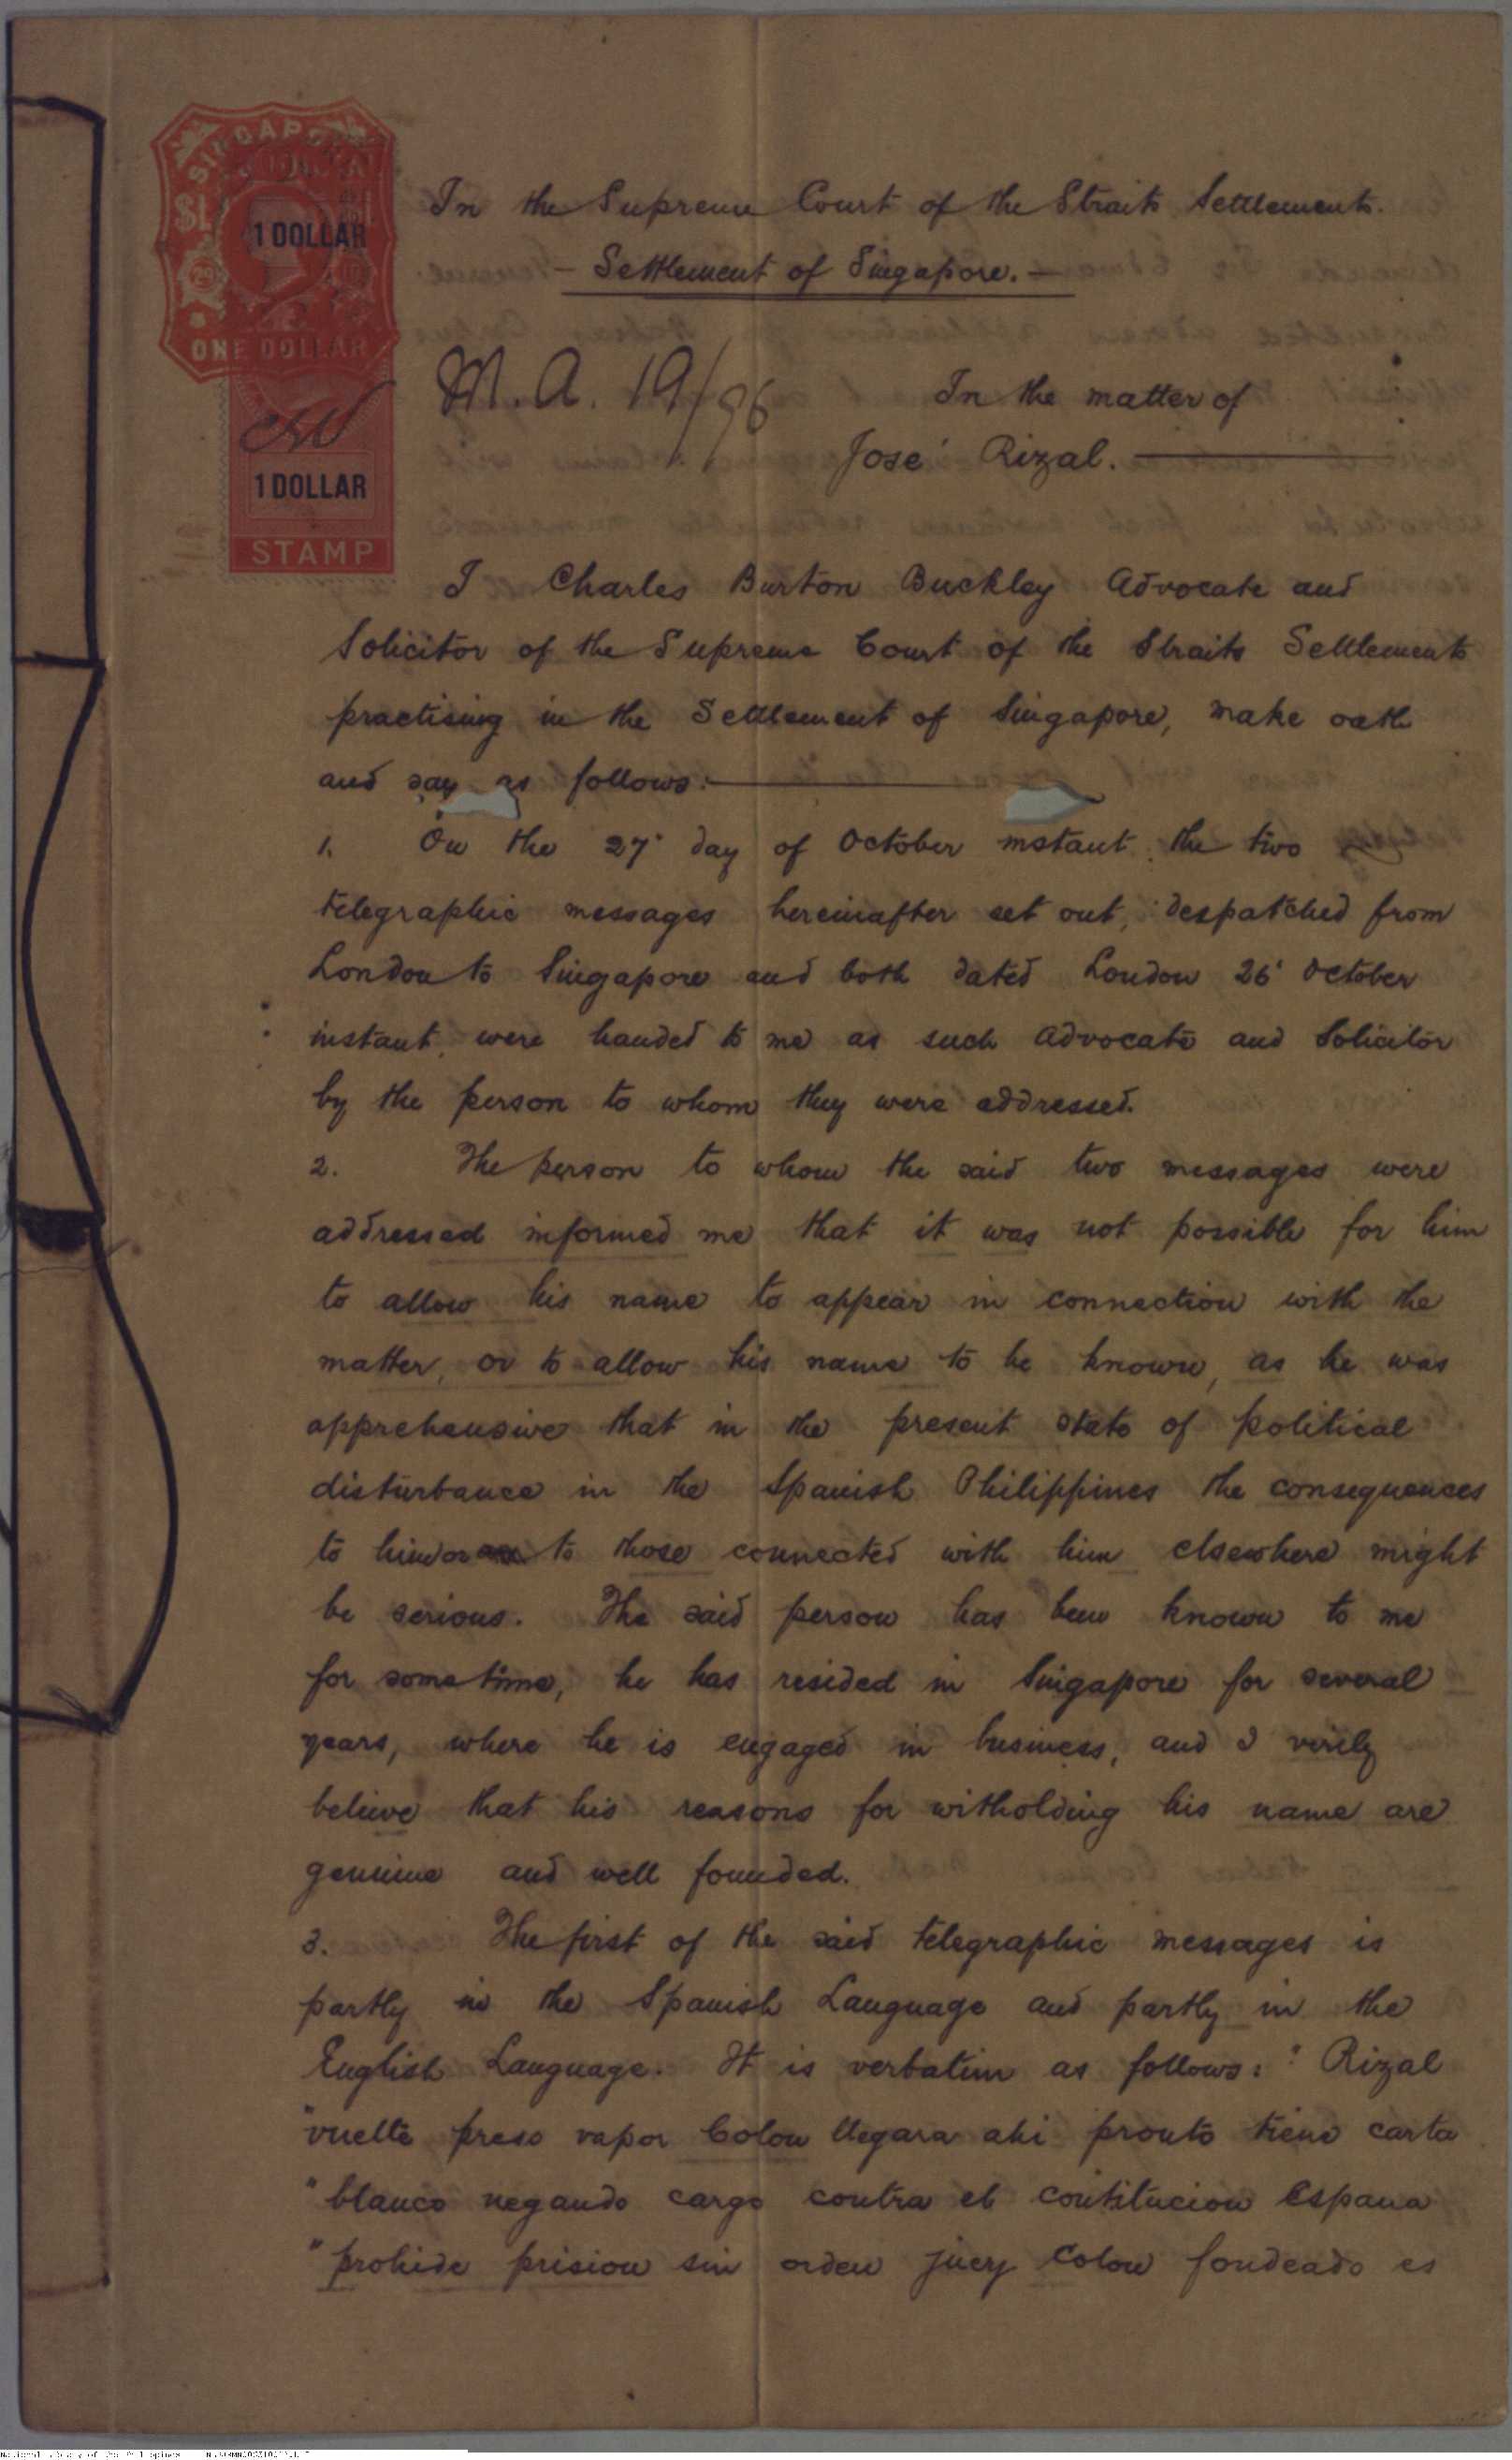 SINGAPORE
$1
1 DOLLAR
ONE DOLLAR
1 DOLLAR
STAMP
In the Supreme Court of the Straits Settlements.
— Settlement of Singapore. —
M. A. 19/96
In the matter of
José Rizal.
I Charles Burton Buckley Advocate and
Solicitor of the Supreme Court of the Straits Settlements
practising in the Settlement of Singapore, make oath
and say as follows:
1. On the 27' day of October instant, the two
telegraphic messages hereinafter set out, despatched from
London to Singapore and both dated London 26' October
instant, were handed to me as such Advocate and Solicitor
by the person to whom they were addressed.
2. The person to whom the said two messages were
addressed informed me that it was not possible for him
to allow his name to appear in connection with the
matter, or to allow his name to be known, as he was
apprehensive that in the present state of political
disturbance in the Spanish Philippines the consequences
to him or to those connected with him elsewhere might
be serious. The said person has been known to me
for some time, he has resided in Singapore for several
years, where he is engaged in business, and I verily
believe that his reasons for witholding his name are
genuine and well founded.
3. The first of the said telegraphic messages is
partly in the Spanish Language and partly in the
English Language. It is verbatim as follows: "Rizal
"vuelte preso vapor Colon llegara ahi pronto tiene carta
"blanco negando cargo contra el contitucion Espana
"prohide prision sin orden juez Colon fondeado es